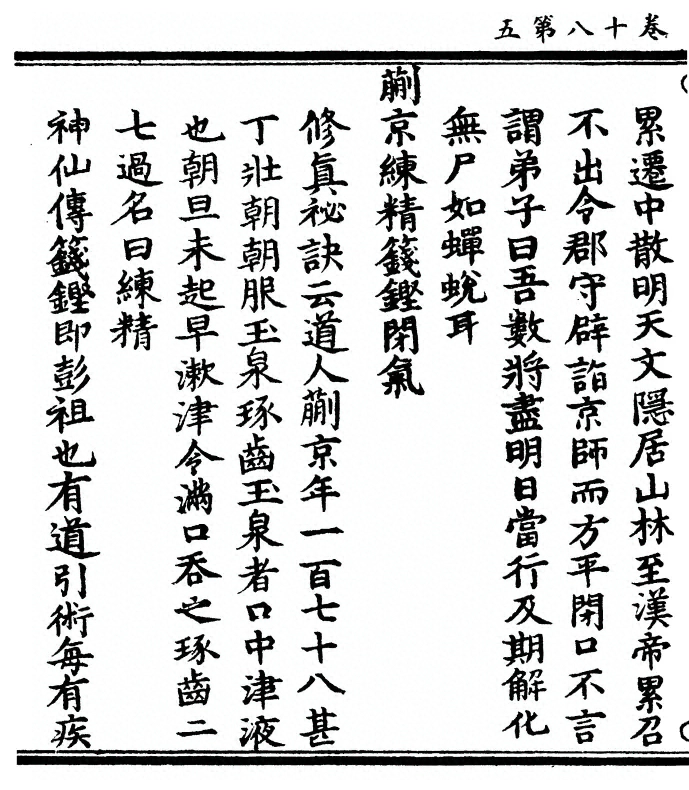 卷十八第五
累遷中散明天文隱居山林至漢帝累召
不出令郡守辟詣京師而方平閉口不言
謂弟子曰吾數將盡明日當行及期解化
無尸如蟬蛻耳
蒯京練精籛鏗閉氣
修真祕訣云道人蒯京年一百七十八甚
丁壯朝朝服玉泉琢齒玉泉者口中津液
也朝旦未起早漱津令滿口吞之琢齒二
七過名曰練精
神仙傳籛鏗即彭祖也有道引術每有疾